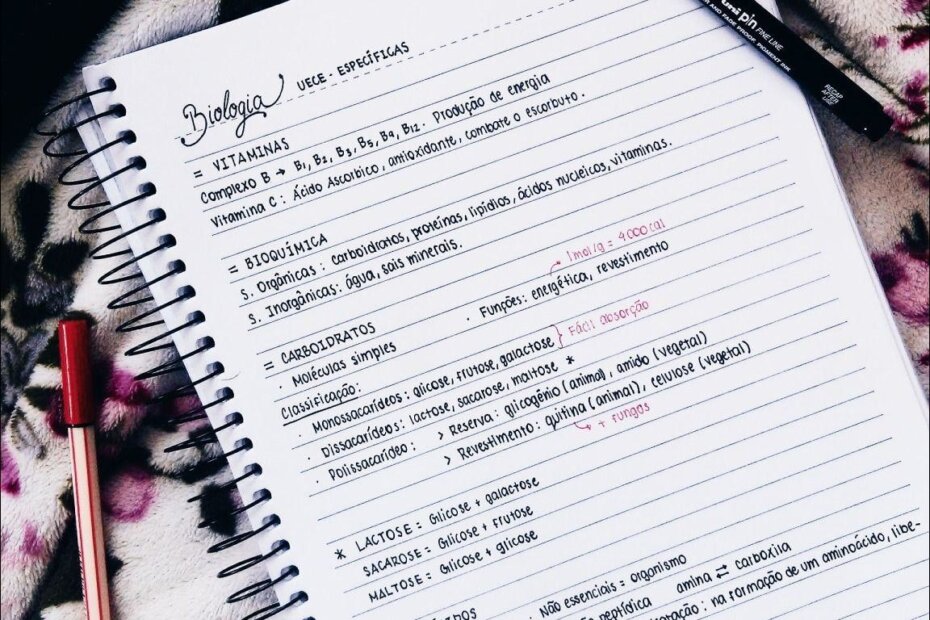 Biologia UECE - ESPECÍFICAS
= VITAMINAS
Complexo B → B1, B2, B3, B5, B9, B12. Produção de energia
Vitamina C: Ácido Ascorbico, antioxidante, combate o escorbuto.
= BIOQUÍMICA
S. Orgânicas: carboidratos, proteínas, lipídios, ácidos nucleicos, vitaminas.
S. Inorgânicas: água, sais minerais.
1mol/g = 4000cal
= CARBOIDRATOS
· Moléculas simples · Funções: energética, revestimento
Classificação:
· Monossacarídeos: glicose, frutose, galactose } Fácil absorção
· Dissacarídeos: lactose, sacarose, maltose *
· Polissacarídeo: > Reserva: glicogênio (animal), amido (vegetal)
> Revestimento: quitina (animal), celulose (vegetal)
+ fungos
* LACTOSE = Glicose + galactose
SACAROSE = Glicose + frutose
MALTOSE = Glicose + glicose
Não essenciais = organismo
peptídica amina ⇄ carboxila
: na formação de um aminoácido, libe-
uni pin FINE LINE
AND FADE PROOF, PIGMENT INK
RECAP AFTER USE